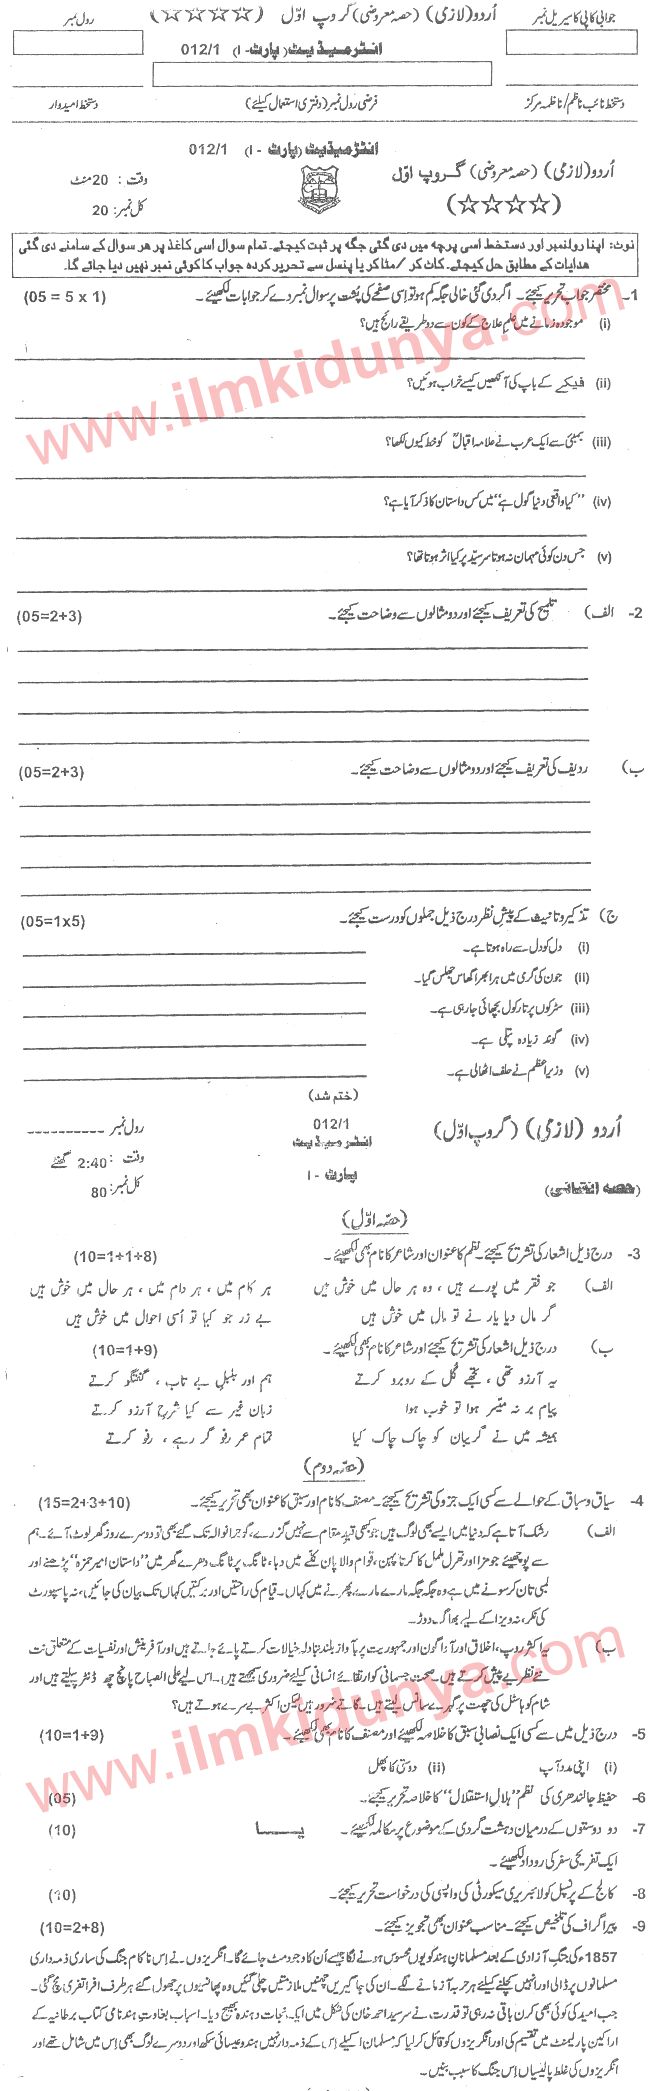 جوابی کاپی کا سیریل نمبر
اُردو (لازمی) (حصہ معروضی) گروپ اوّل (☆☆☆☆)
رول نمبر
انٹرمیڈیٹ (پارٹ - I) 012/1
دستخط نائب ناظم / ناظمہ مرکز
فرضی رول نمبر (دفتری استعمال کیلئے)
دستخط امیدوار
انٹرمیڈیٹ (پارٹ - I) 012/1
اُردو (لازمی) (حصہ معروضی) گروپ اوّل
(☆☆☆☆)
وقت : 20 منٹ
کل نمبر: 20
نوٹ: اپنا رولنمبر اور دستخط اسی پرچہ میں دی گئی جگہ پر ثبت کیجئے۔ تمام سوال اسی کاغذ پر ہر سوال کے سامنے دی گئی
ہدایات کے مطابق حل کیجئے۔ کاٹ کر / مٹا کر یا پنسل سے تحریر کردہ جواب کا کوئی نمبر نہیں دیا جائے گا۔
1- مختصر جواب تحریر کیجئے۔ اگر دی گئی خالی جگہ کم ہو تو اِسی صفحے کی پشت پر سوال نمبر دے کر جوابات لکھیئے۔ (05 = 5 x 1)
(i) موجودہ زمانے میں علمِ علاج کے کون سے دو طریقے رائج ہیں؟
(ii) فیکے کے باپ کی آنکھیں کیسے خراب ہوئیں؟
(iii) بمبئی سے ایک عرب نے علامہ اقبالؒ کو خط کیوں لکھا؟
(iv) "کیا واقعی دنیا گول ہے" میں کس داستان کا ذکر آیا ہے؟
(v) جس دن کوئی مہمان نہ ہوتا سر سیّد پر کیا اثر ہوتا تھا؟
2- الف) تلمیح کی تعریف کیجئے اور دو مثالوں سے وضاحت کیجئے۔ (05=2+3)
ب) ردیف کی تعریف کیجئے اور دو مثالوں سے وضاحت کیجئے۔ (05=2+3)
ج) تذکیر و تانیث کے پیشِ نظر درج ذیل جملوں کو درست کیجئے۔ (05=1x5)
(i) دل کو دل سے راہ ہوتا ہے۔
(ii) جون کی گرمی میں ہرا بھرا گھاس جھلس گیا۔
(iii) سڑکوں پر تارکول بچھائی جا رہی ہے۔
(iv) گوند زیادہ پتلی ہے۔
(v) وزیراعظم نے حلف اٹھالی ہے۔
(ختم شد)
اُردو (لازمی) (گروپ اوّل)
012/1
انٹرمیڈیٹ
پارٹ - I
رول نمبر ----------
وقت : 2:40 گھنٹے
کل نمبر: 80
(حصہ انشائی)
(حصّہ اوّل)
3- درج ذیل اشعار کی تشریح کیجئے۔ نظم کا عنوان اور شاعر کا نام بھی لکھیئے۔ (10=1+1+8)
الف) جو فقر میں پورے ہیں ، وہ ہر حال میں خوش ہیں ہر کام میں ، ہر دام میں ، ہر حال میں خوش ہیں
گر مال دیا یار نے تو مال میں خوش ہیں بے زر جو کیا تو اُسی احوال میں خوش ہیں
ب) درج ذیل اشعار کی تشریح کیجئے اور شاعر کا نام بھی لکھیئے۔ (10=1+9)
یہ آرزو تھی ، تجھے گُل کے روبرو کرتے ہم اور بلبلِ بے تاب ، گفتگو کرتے
پیام بر نہ میّسر ہوا تو خوب ہوا زبانِ غیر سے کیا شرحِ آرزو کرتے
ہمیشہ میں نے گریبان کو چاک چاک کیا تمام عمر رفو گر رہے ، رفو کرتے
(حصّہ دوم)
4- سیاق و سباق کے حوالے سے کسی ایک جزو کی تشریح کیجئے۔ مصنف کا نام اور سبق کا عنوان بھی تحریر کیجئے۔ (15=2+3+10)
الف) رشک آتا ہے کہ دنیا میں ایسے بھی لوگ ہیں جو کبھی قیدِ مقام سے نہیں گزرے، گوجرانوالہ تک گئے بھی تو دوسرے روز گھر لوٹ آئے۔ ہم
سے پوچھیئے جو مزا اور تھرل ململ کا کرتا پہن، قوام والا پان کلّے میں دبا، ٹانگ پر ٹانگ دھرے گھر میں "داستان امیر حمزہ" پڑھنے اور
لمبی تان کر سونے میں ہے وہ جگہ جگہ مارے مارے پھرنے میں کہاں۔ قیام کی راحتیں اور برکتیں کہاں تک بیان کی جائیں، نہ پاسپورٹ
کی فکر، نہ ویزا کے لیے بھاگ دوڑ۔
ب) یہ اکثر روپ، اخلاق اور آواگون اور جمہوریت پر بآواز بلند تبادلہ خیالات کرتے پائے جاتے ہیں اور آفرینش اور نفسیات کے متعلق نت
نئے نظریے پیش کرتے ہیں۔ صحتِ جسمانی کو ارتقائے انسانی کیلئے ضروری سمجھتے ہیں۔ اس لیے علی الصباح پانچ چھ ڈنٹر پیلتے ہیں اور
شام کو ہاسٹل کی چھت پر گہرے سانس لیتے ہیں۔ گاتے ضرور ہیں لیکن اکثر بے سرے ہوتے ہیں؟
5- درج ذیل میں سے کسی ایک نصابی سبق کا خلاصہ لکھیئے اور مصنف کا نام بھی لکھیئے۔ (10=1+9)
(i) اپنی مدد آپ (ii) دوستی کا پھل
6- حفیظ جالندھری کی نظم "ہلالِ استقلال" کا خلاصہ تحریر کیجئے۔ (05)
7- دو دوستوں کے درمیان دہشت گردی کے موضوع پر مکالمہ لکھیئے۔ یا (10)
ایک تفریحی سفر کی روداد لکھیئے۔
8- کالج کے پرنسپل کو لائبریری سیکورٹی کی واپسی کی درخواست تحریر کیجئے۔ (10)
9- پیراگراف کی تلخیص کیجئے۔ مناسب عنوان بھی تجویز کیجئے۔ (10=2+8)
1857ء کی جنگِ آزادی کے بعد مسلمانانِ ہند کو یوں محسوس ہونے لگا جیسے اُن کا وجود مٹ جائے گا۔ انگریزوں نے اِس ناکام جنگ کی ساری ذمہ داری
مسلمانوں پر ڈالی اور انہیں کچلنے کیلئے ہر حربہ آزمانے لگے۔ ان کی جاگیریں چھنیں ملازمتیں چلی گئیں وہ پھانسیوں پر جھول گئے ہر طرف افراتفری مچ گئی۔
جب امید کی کوئی بھی کرن باقی نہ رہی تو قدرت نے سر سید احمد خان کی شکل میں ایک نجات دہندہ بھیج دیا۔ اسباب بغاوتِ ہند نامی کتاب برطانیہ کے
اراکینِ پارلیمنٹ میں تقسیم کی اور انگریزوں کو قائل کر لیا کہ مسلمان اکیلے اِس کے ذمہ دار نہیں ہندو عیسائی سکھ اور دوسرے لوگ بھی اِس میں شامل تھے اور
انگریزوں کی غلط پالیسیاں اِس جنگ کا سبب بنیں۔
www.ilmkidunya.com
www.ilmkidunya.com